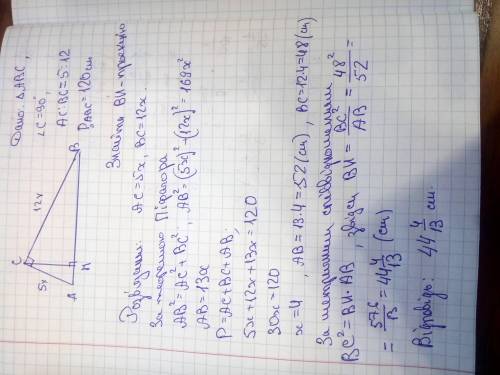 Дано: ΔABC,
∠C=90°,
AC:BC=5:12
P_ABC=120 cm
Знайти BH-проекцію
C
5x
12x
A
H
B
Розв'язання: AC=5x, BC=12x.
За теоремою Піфагора
AB²=AC²+BC², AB²=(5x)²+(12x)²=169x²
AB=13x
P=AC+BC+AB,
5x+12x+13x=120
30x=120
x=4, AB=13·4=52(см), BC=12·4=48(см)
За метричними співвідношеннями
BC²=BH·AB, звідси BH=BC²/AB=48²/52=
=576/13=44 4/13 (см)
Відповідь: 44 4/13 см.